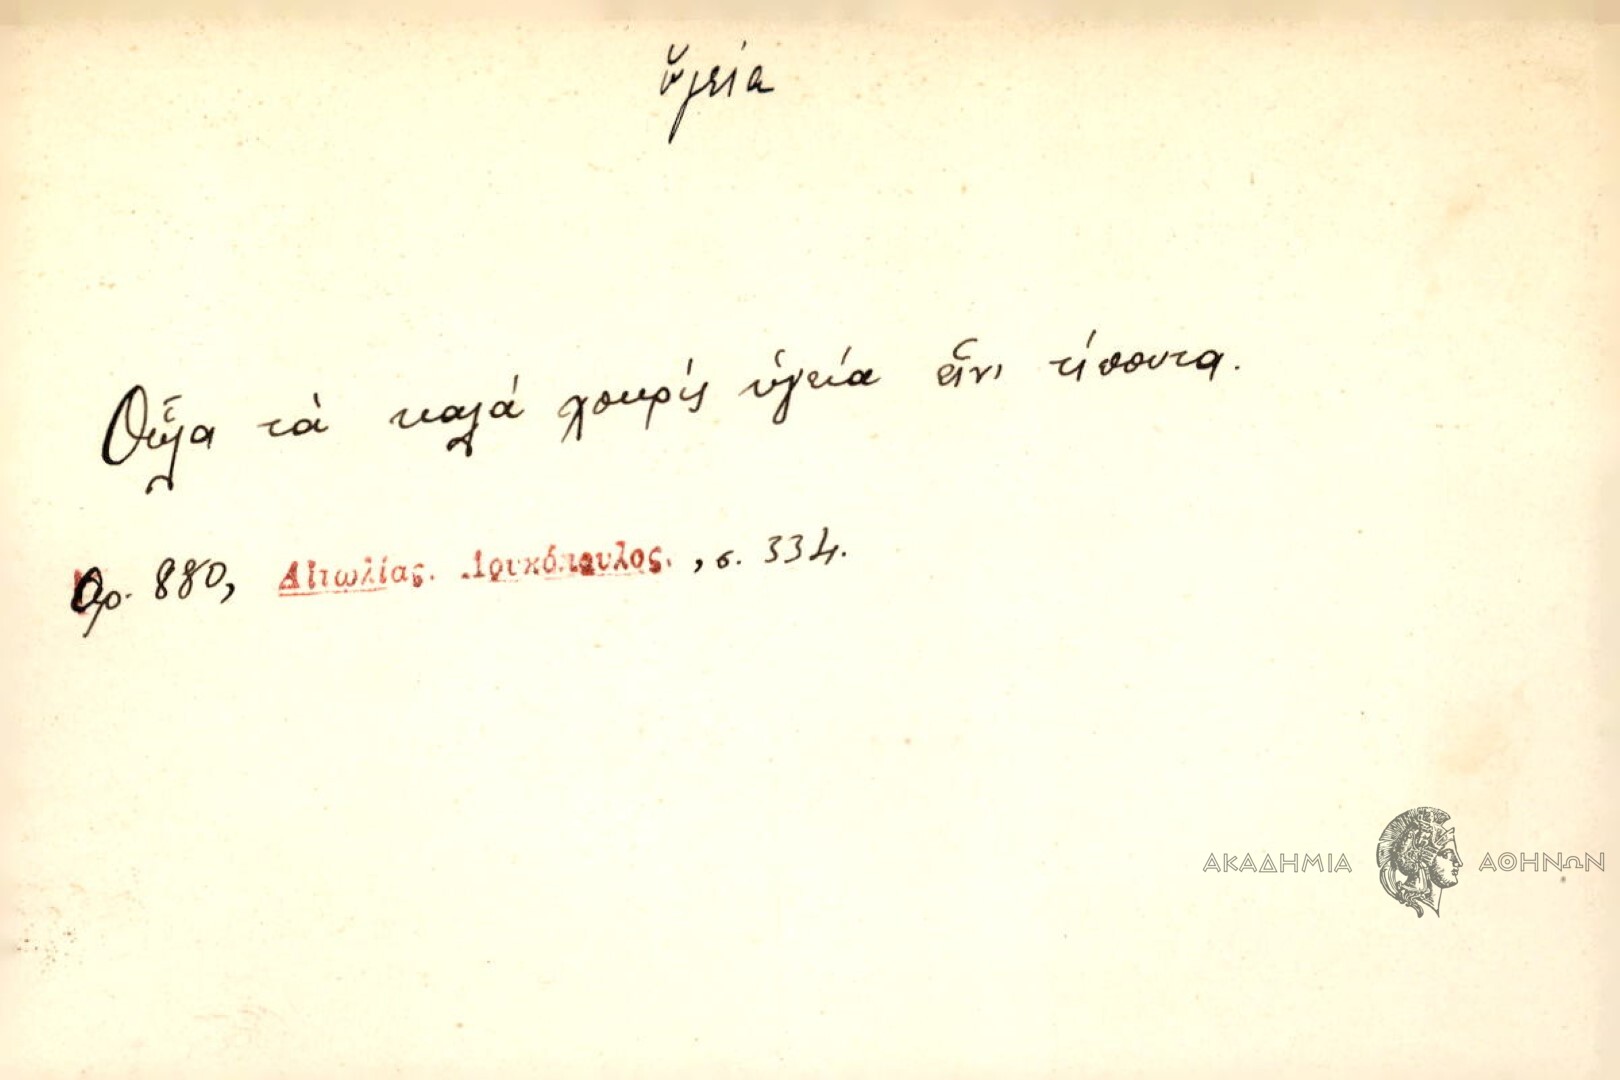 ὑγεία
Οὗλα τὰ καλά χουρίς ὑγεία εἶνι τίπουτα.
Αρ. 880, Αἰτωλίας. Λουκόπουλος. , σ. 334.
ΑΚΑΔΗΜΙΑ ΑΘΗΝΩΝ